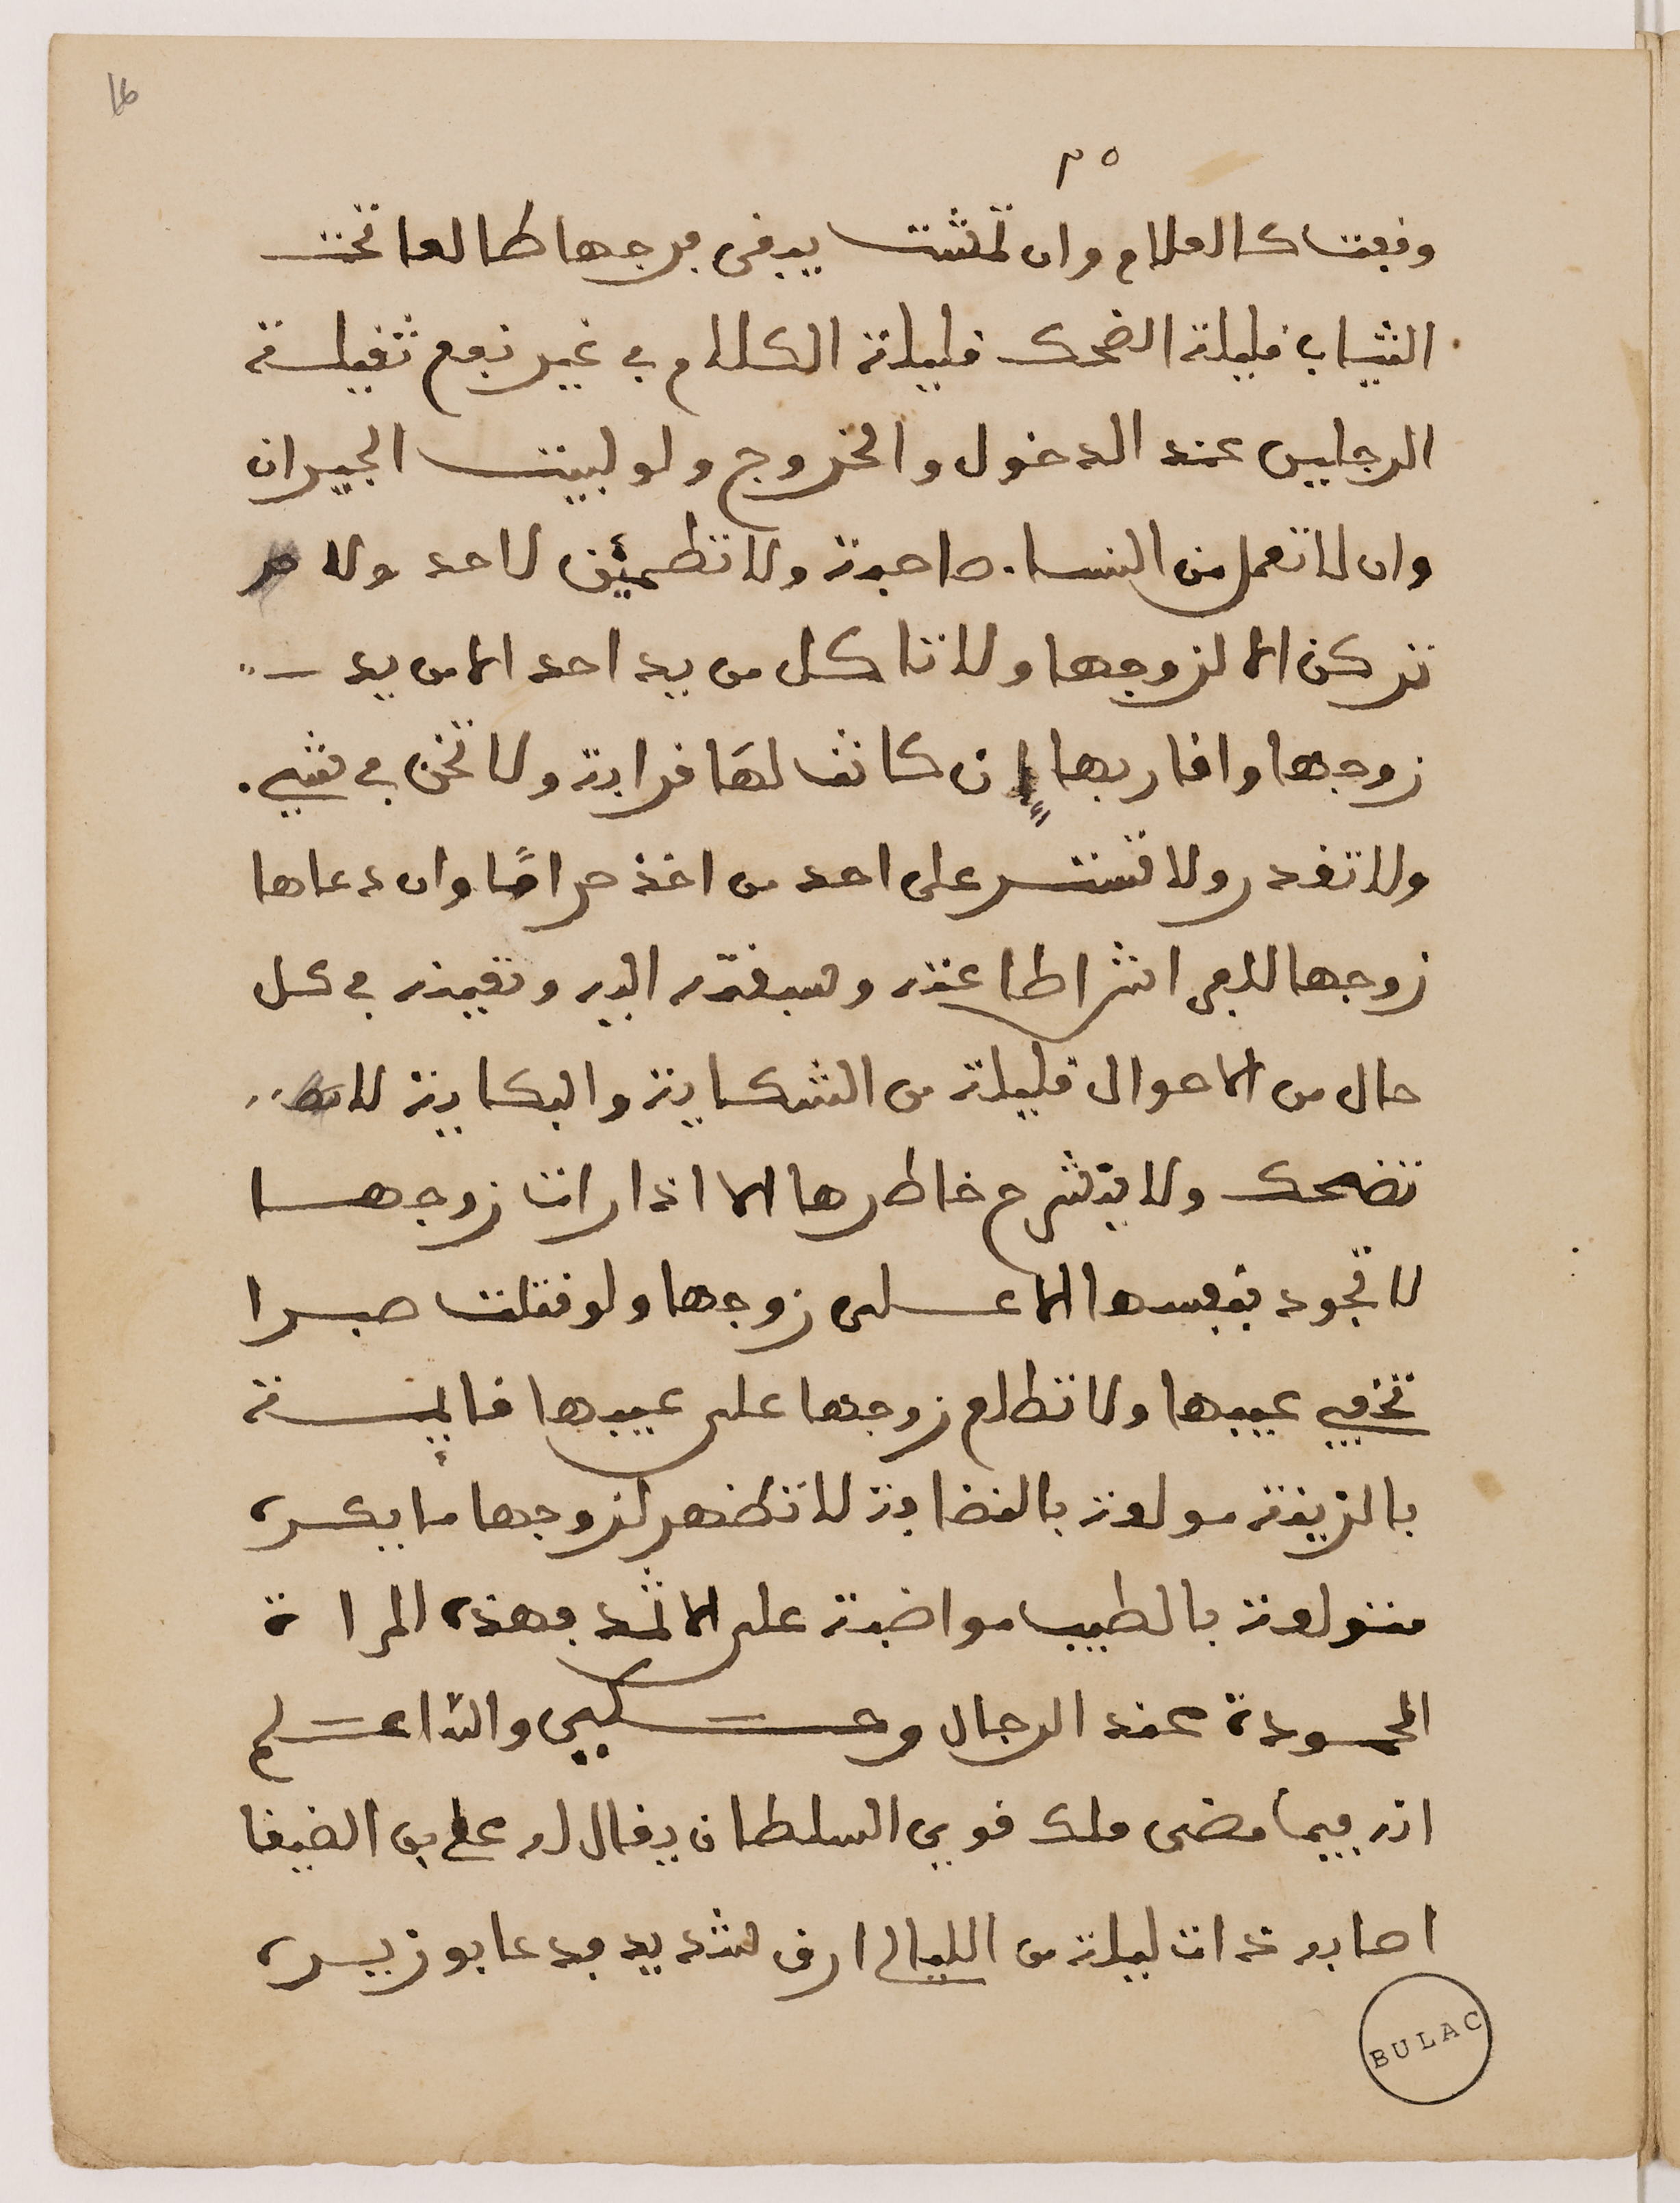 16
٣٥
وقعت كالعلام وان تمشت يبقى فرجها طالعا تحت
الثياب قليلة الضحك قليلة الكلام في غير نفع ثقيلة
الرجلين عند الدخول والخروج ولو لبيت الجيران
وان لا تعمل من النساء صاحبة ولا تطمئن لاحد ولا
تركن الا لزوجها ولا تاكل من يد احد الا من يد
زوجها واقاربها ان كانت لها قرابة ولا تخن في شيء
ولا تغدر ولا تستر على احد من اخذ حراما وان دعاها
زوجها للامر اشراطا عنه وسبقته اليه وتعينه في كل
حال من الاحوال قليلة من الشكاية والبكاية لا
تضحك ولا ينشرح خاطرها الا اذا رات زوجها
لا تجود بنفسها الا على زوجها ولو قتلت صبرا
تخفي عيبها ولا تطلع زوجها على عيبها قايمة
بالزينة مولعة بالنضابة لا تظهر لزوجها ما يكره
متولعة بالطيب مواضبة على الاثمد فهذه المراة
المحمودة عند الرجال وحكي والله اعلم
انه فيما مضى ملك قوي السلطان يقال له علي بن الضيفا
اصابه ذات ليلة من الليالي ارق شديد فدعا بوزيره
BULAC